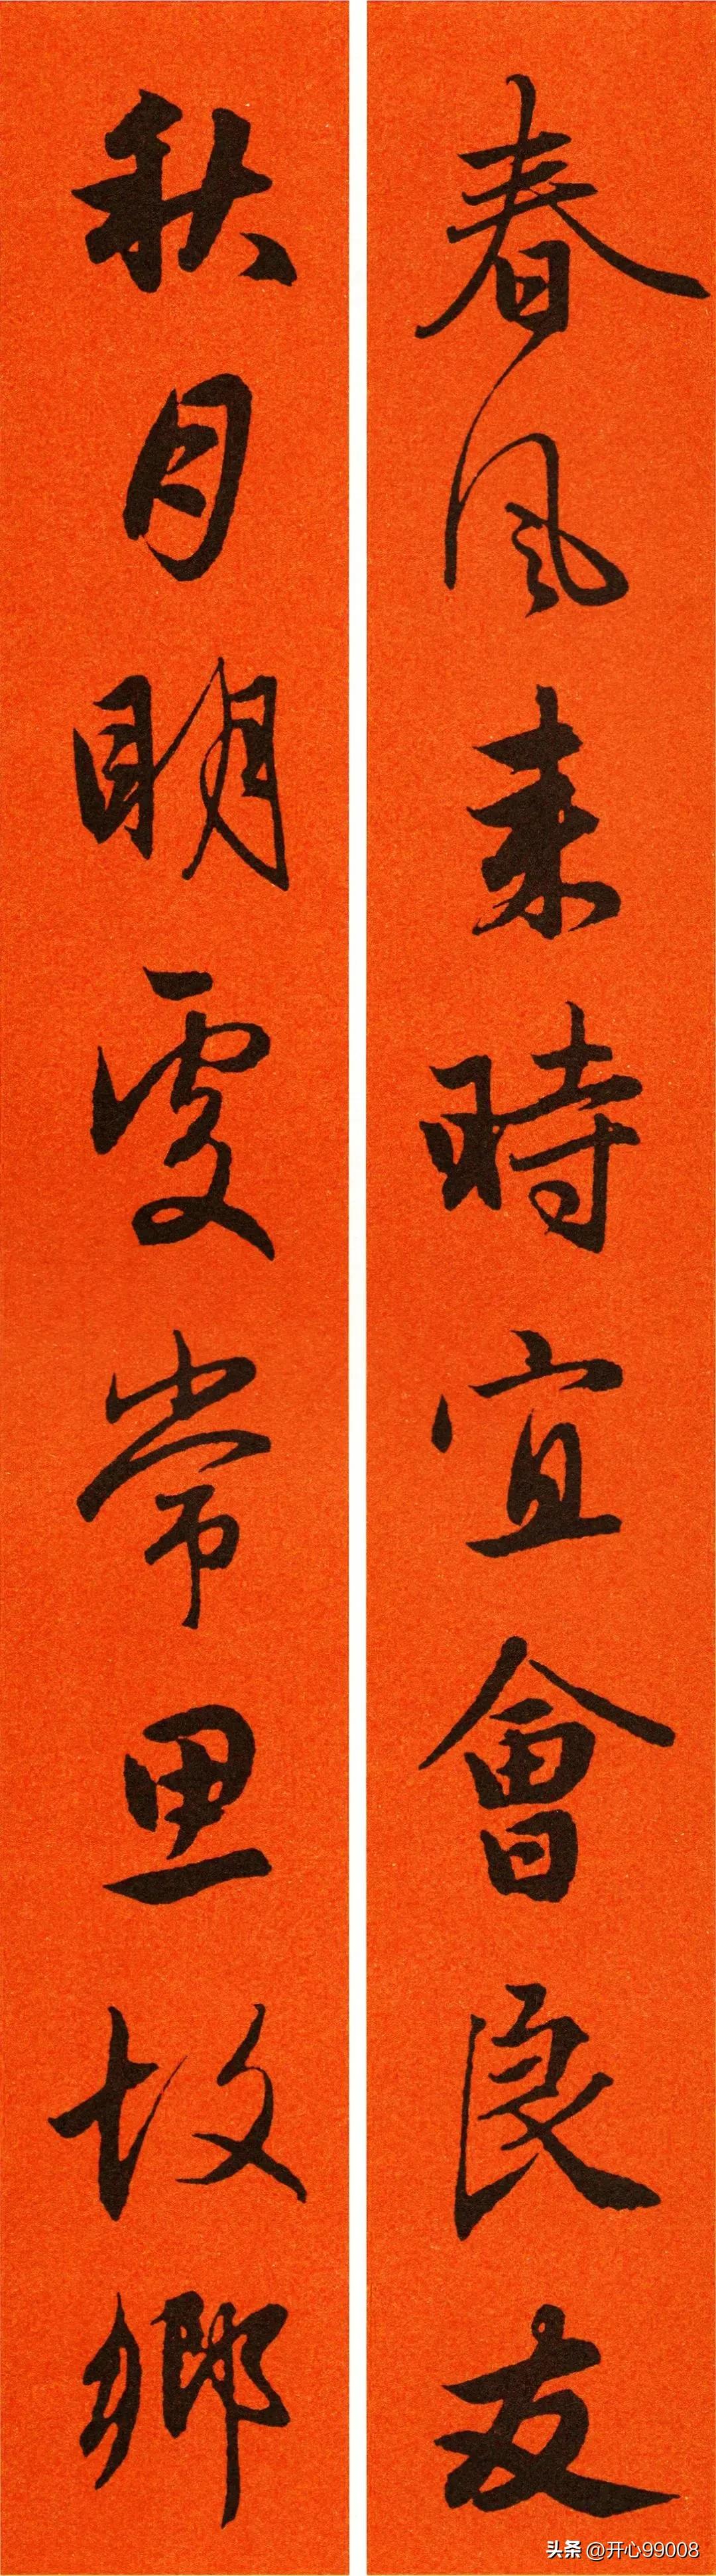 春風来時宜會良友
秋月明處常思故鄉
头条 @开心99008